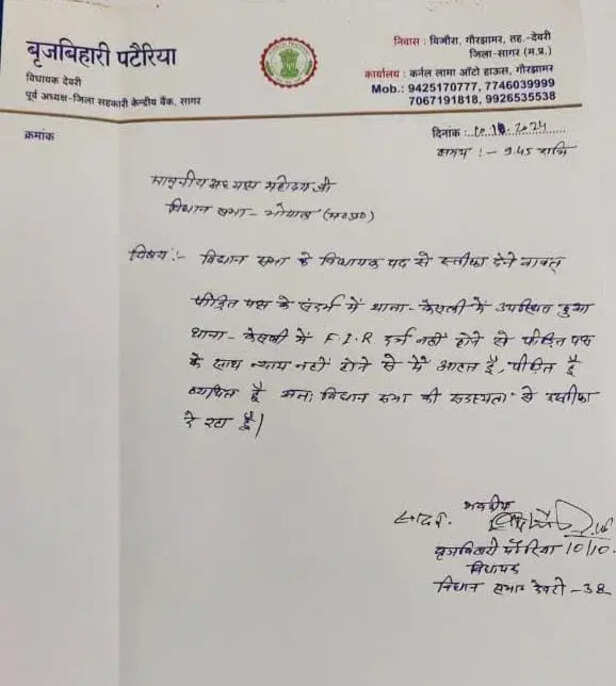 बृजबिहारी पटैरिया
विधायक देवरी
पूर्व अध्यक्ष-जिला सहकारी केन्द्रीय बैंक, सागर
निवास : बिजौरा, गौरझामर, तह.-देवरी
जिला-सागर (म.प्र.)
कार्यालय : कर्नल लामा ऑटो हाऊस, गौरझामर
Mob.: 9425170777, 7746039999
7067191818, 9926535538
क्रमांक
दिनांक : 10.10.2024
समय :- 9.45 रात्रि
माननीय अध्यक्ष महोदय जी
विधान सभा - भोपाल (म०प्र०)
विषय :- विधान सभा के विधायक पद से स्तीफा देने बावत्
पीड़ित पक्ष के संदर्भ में थाना - केसली में उपस्थित हुआ
थाना - केसली में F.I.R दर्ज नहीं होने से पीड़ित पक्ष
के साथ न्याय नहीं होने से मैं आहत हूँ, पीड़ित हूँ
व्यथित हूँ अतः विधान सभा की सदस्यता से स्तीफा
दे रहा हूँ।
सादर. भवदीय
बृजबिहारी पटैरिया 10/10.
विधायक
विधान सभा देवरी - 38